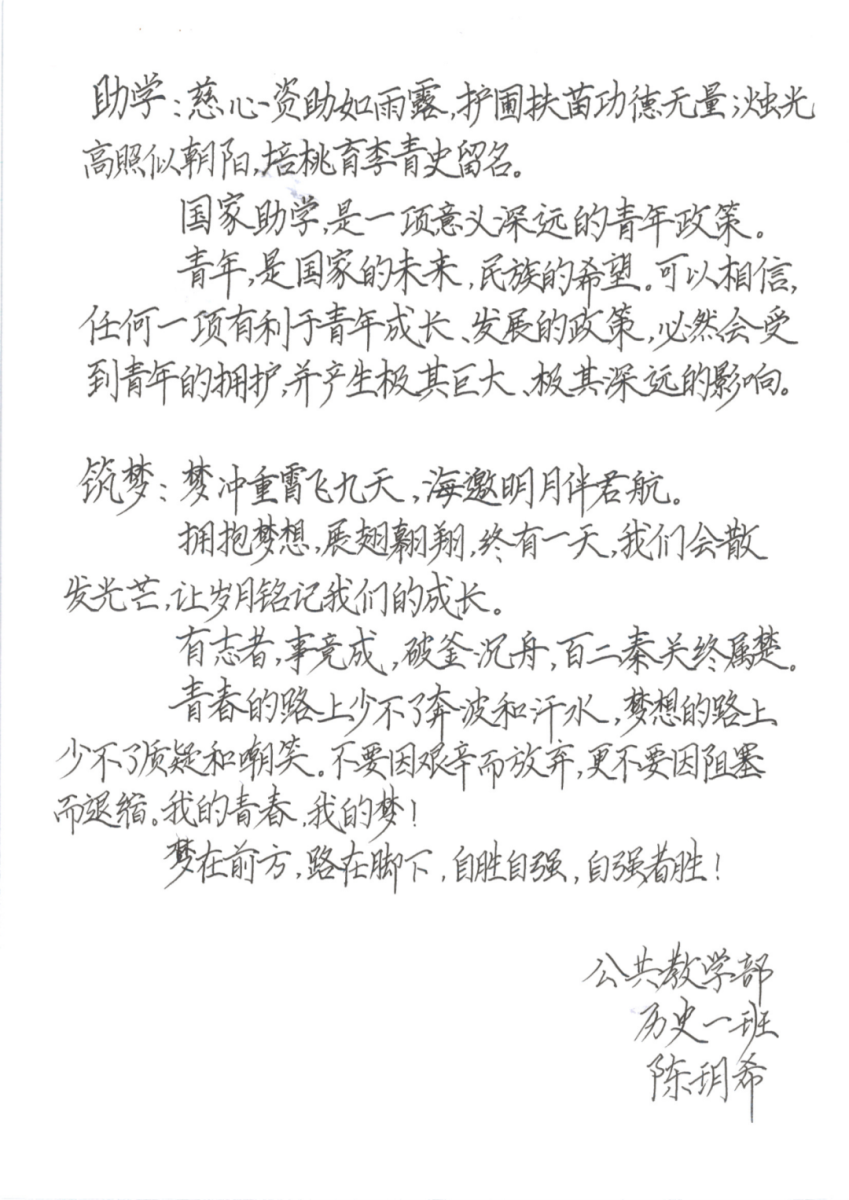 助学：慈心资助如雨露，护圃扶苗功德无量；烛光
高照似朝阳，培桃育李青史留名。
国家助学，是一项意义深远的青年政策。
青年，是国家的未来，民族的希望。可以相信，
任何一项有利于青年成长、发展的政策，必然会受
到青年的拥护，并产生极其巨大、极其深远的影响。
筑梦：梦冲重霄飞九天，海邀明月伴君航。
拥抱梦想，展翅翱翔，终有一天，我们会散
发光芒，让岁月铭记我们的成长。
有志者，事竟成，破釜沉舟，百二秦关终属楚。
青春的路上少不了奔波和汗水，梦想的路上
少不了质疑和嘲笑。不要因艰辛而放弃，更不要因阻塞
而退缩。我的青春，我的梦！
梦在前方，路在脚下，自胜自强，自强者胜！
公共教学部
历史一班
陈玥希